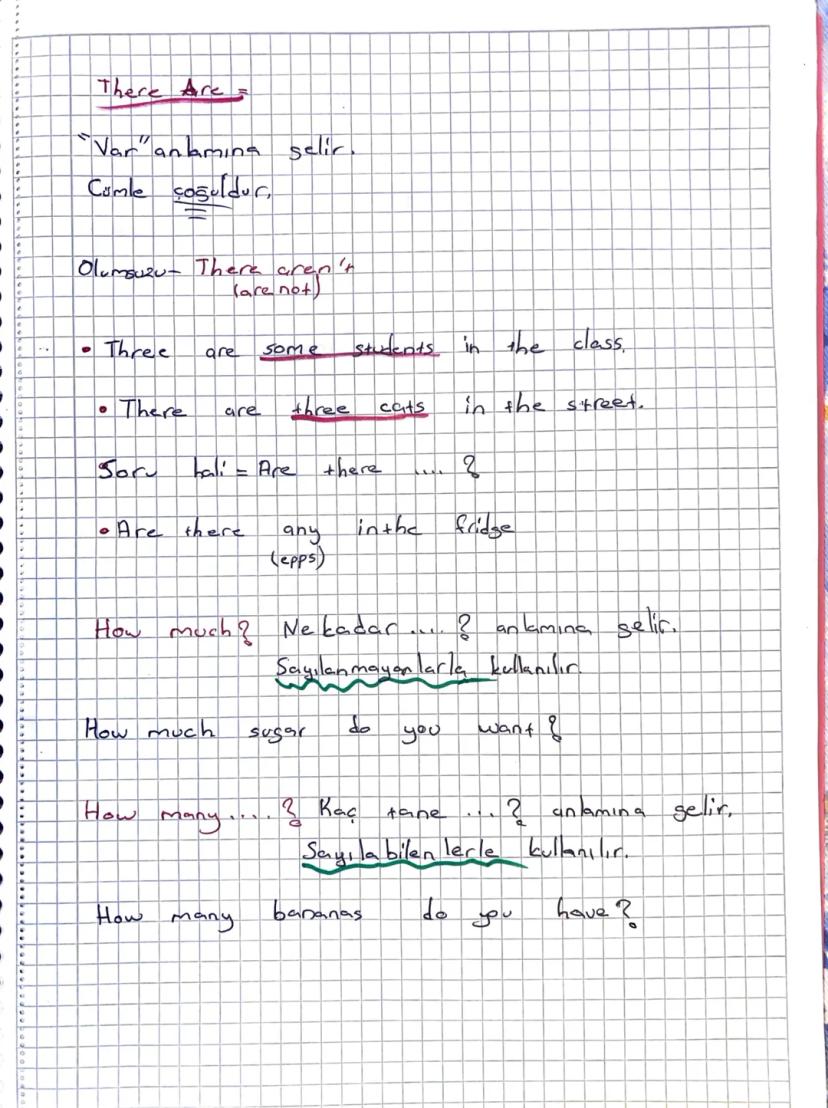 There Are =
"Var" anlamına gelir.
Cümle çoğuldur.
Olumsuzu - There aren't
(are not)
• Three are some students in the class.
• There are three cats in the street.
Soru hali = Are there .... ?
• Are there any in the fridge
(epps)
How much? Ne kadar .... ? anlamına gelir.
Sayılanmayanlarla kullanılır.
How much sugar do you want?
How many .... ? Kaç tane ... ? anlamına gelir.
Sayılabilenlerle kullanılır.
How many bananas do you have?